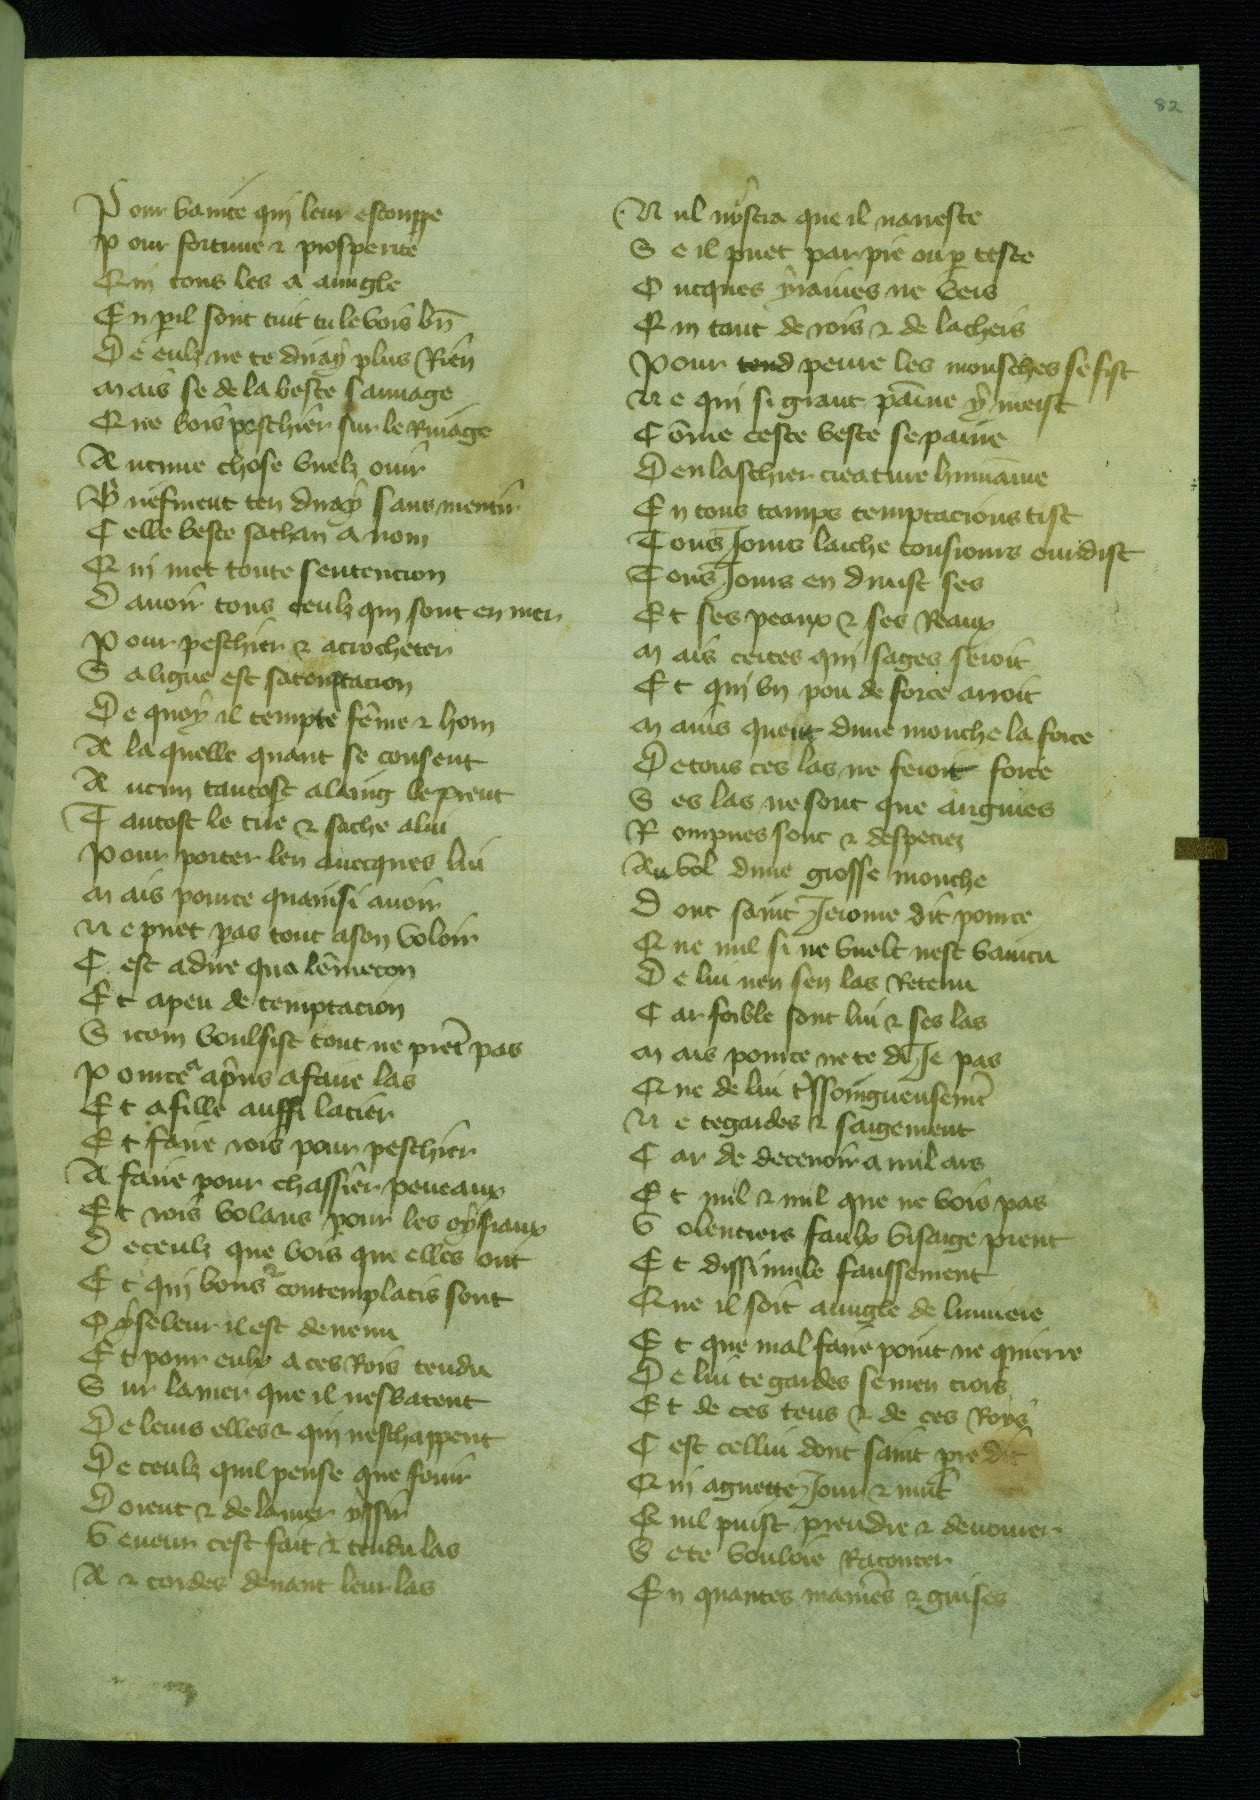 82
Pour vanite qui leur estouppe
Pour fortune & prosperite
Qui tous les a auugle
En peril sont tuit tu le vois bn̄
De eulz ne te diray plus Rien
Mais se de la beste sauuage
Que vois peschier sur le Riuage
Aucune chose vuelz ouir
Briefment ten diray sans mentir
Celle beste sathan a nom
Qui met toute sentencion
Dauoir tous ceulz qui sont en mer
Pour peschier & acrocheter
Sa ligne est sa temptacion
De quoy il tempte fēme & hom
A la quelle quant se consent
Aucun tantost a laing le prent
Tantost le tire & sache a lui
Pour porter len auecques lui
Mais pource quainsi auoir
Ne puet pas tout a son voloir
Cest a dire qua lēmecon
Et a peu de temptacion
Sicom voulsist tout ne prēt pas
Pource a apris a faire las
Et a filler aussi lacier
Et faire rois pour peschier
A faire pour chassier peueaux
Et rois volans pour les oysiaux
De ceulz que vois que elles ont
Et qui bons contemplatis sont
Oyseleur il est deuenu
Et pour eulx a ces Rois tendu
Sur la mer que il nesbatent
De leurs elles & qui neschappent
De ceulz quil pense que fouir
Doient & de la mer yssir
Veneur cest fait & tendu las
A & cordes deuant leur las
Nul nistra que il narreste
Se il puet par pie ou p teste
Oncques yraines ne veis
Qui tant de rois & de lacheis
Pour tend penre les mousches se fist
Ne qui si grant paīne y meist
Cōme ceste beste se paine
Den laschier creature humaine
En tous tamps temptacions tist
Tous Jours lache tousiours ourdist
Tous Jours en diuist ses
Et ses peaux & ses Reaux
Mais certes qui sages seroit
Et qui vn pou de force arroit
Mais quent dune mouche la force
De tous ces las ne feroit force
Ses las ne sont que iragnies
Rompues sont & despecies
Au vol dune grosse mouche
Dont saint Jerome dit pource
Que nul si ne vuelt nest vaincu
De lui nen sen las Retenu
Car foible sont lui & ses las
Mais pource ne te di Je pas
Que de lui tssoingneusemēt
Ne te gardes & saigement
Car de deceuoir a mil ars
Et mil & mil que ne vois pas
Volentiers faulx visaige prent
Et dissimule faussement
Que il soit auugle de lumiere
Et que mal faire point ne quierre
De lui te gardes se men crois
Et de ces tens & de ces Roys
Cest cellui dont saint pre dit
Qui aguette Jour & nuit
Quil puist prendre & deuourer
Se te vouloie Raconter
En quantes manies & guises